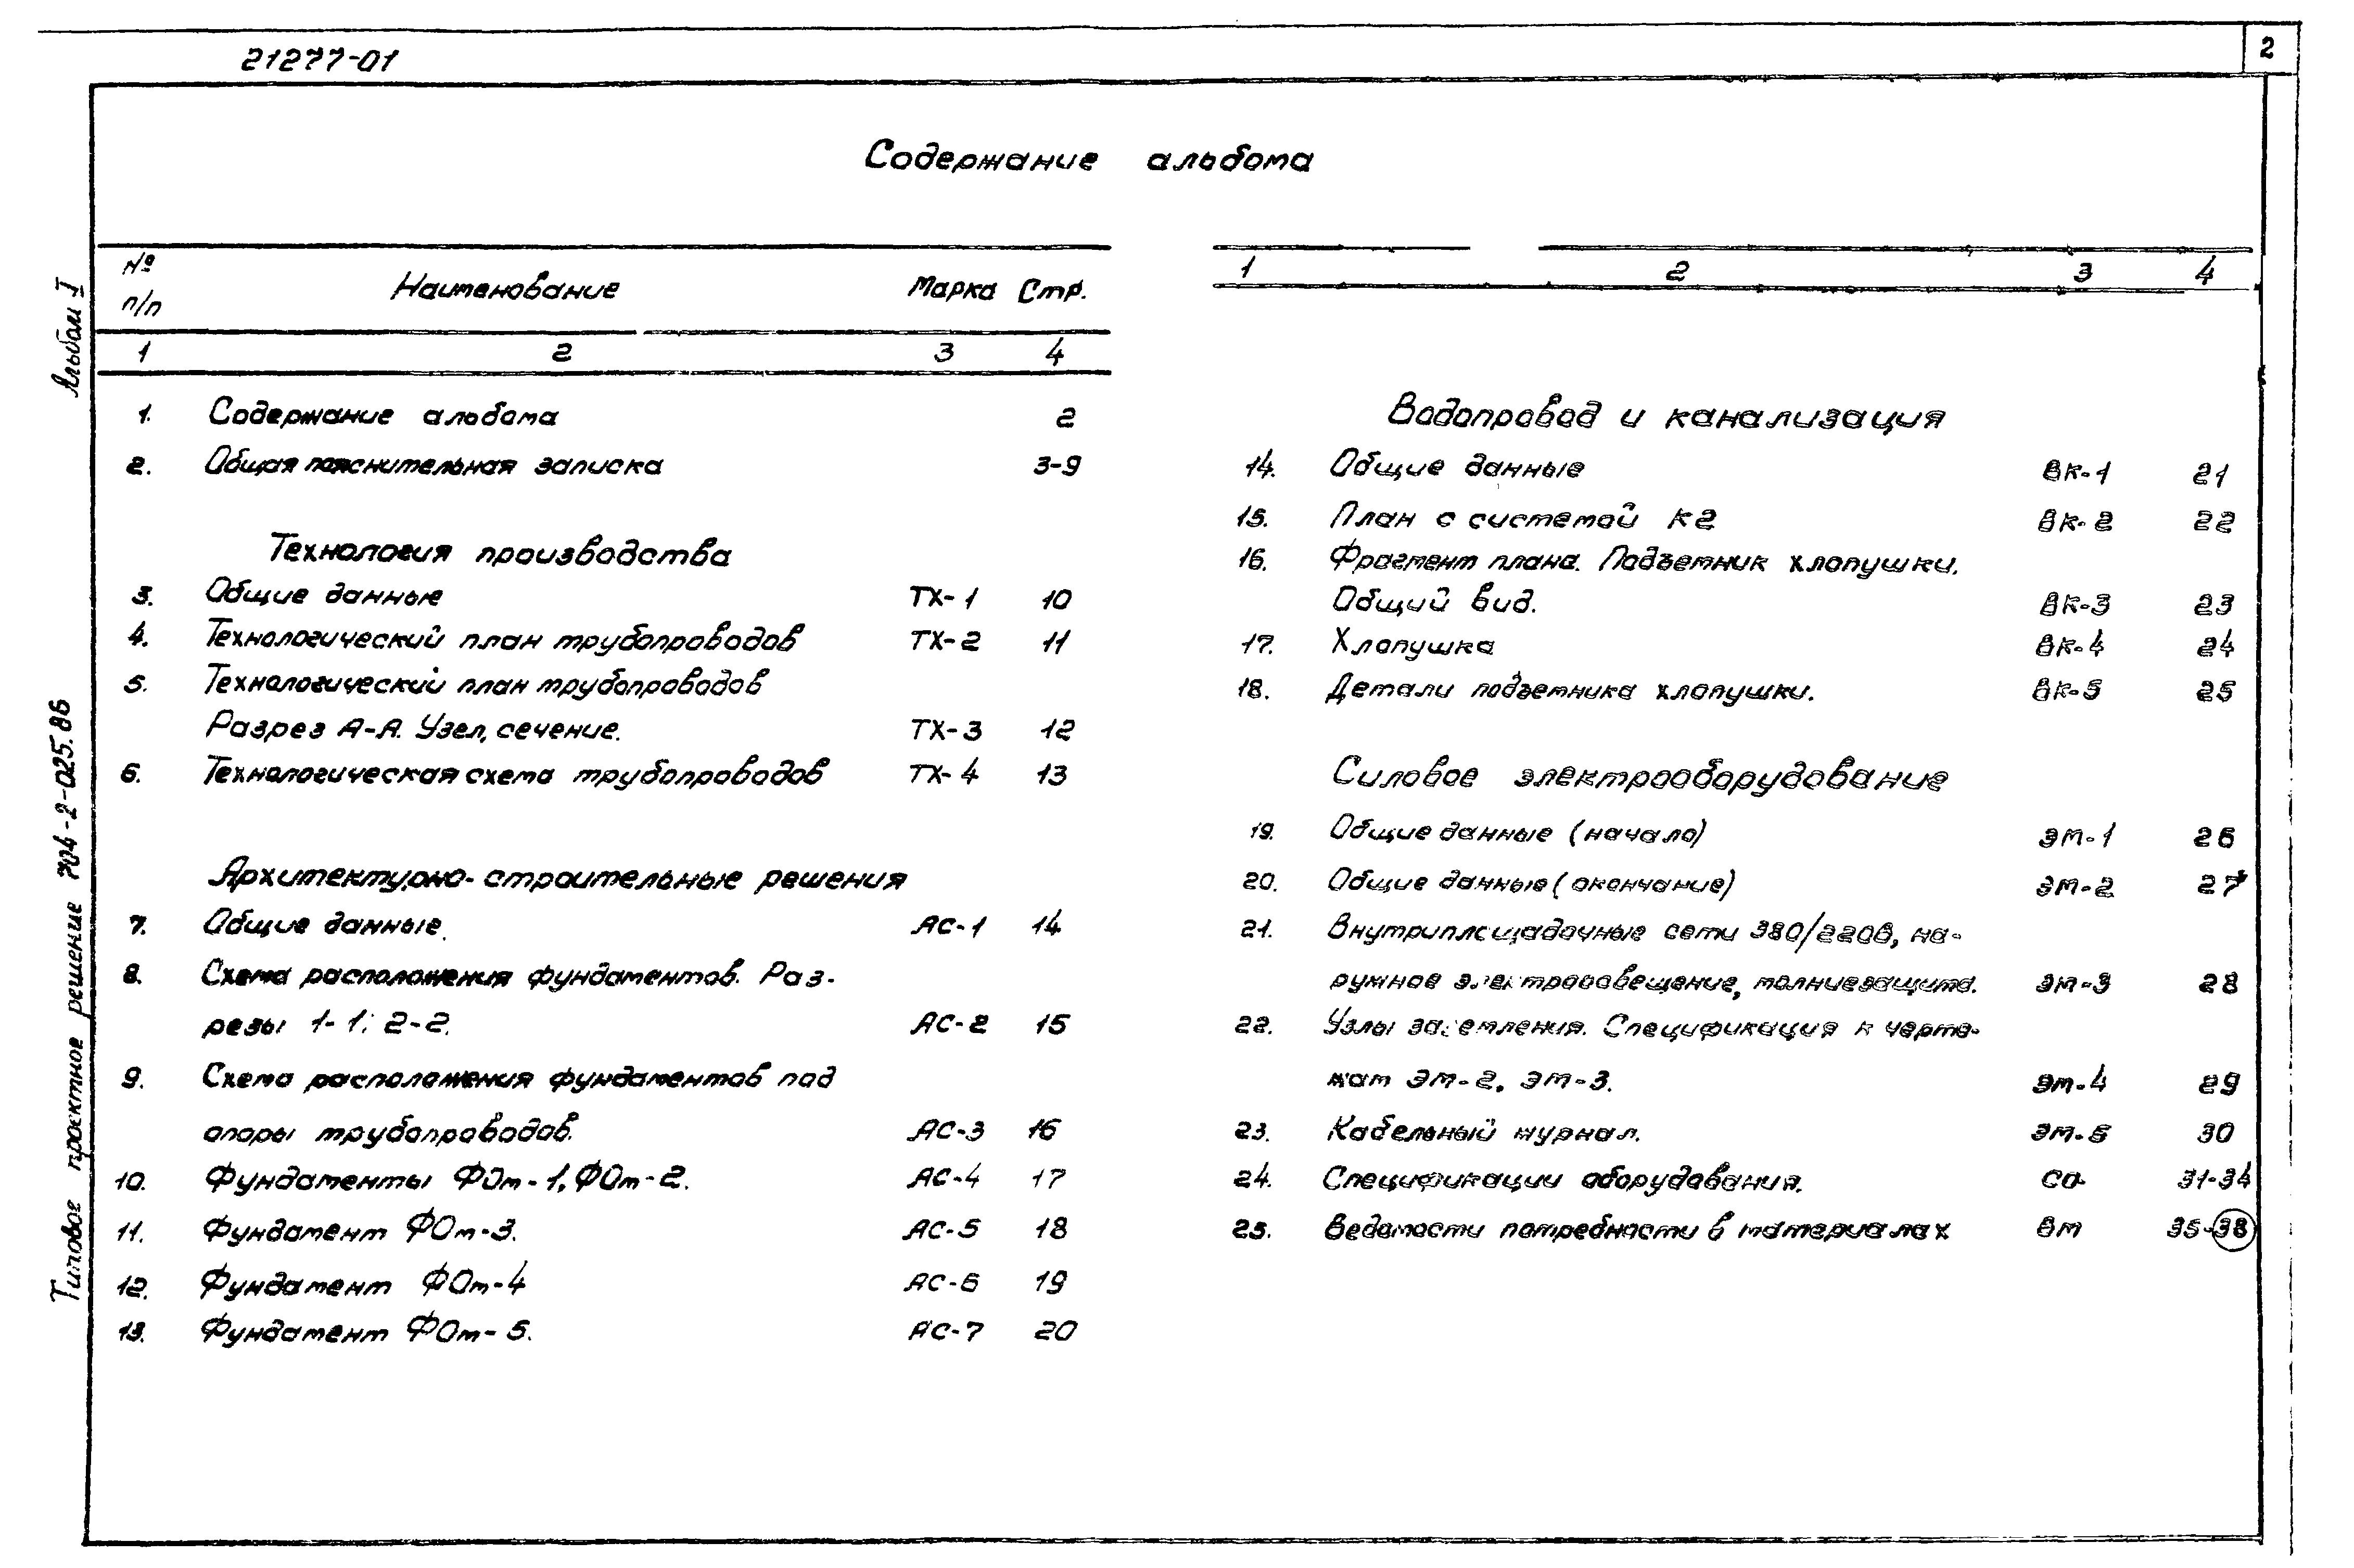 21277-01
2
Содержание альбома
Альбом I
Типовое проектное решение 704-2-025.86
№ п/п Наименование Марка Стр.
1 2 3 4
1. Содержание альбома 2
2. Общая пояснительная записка 3-9
Технология производства
3. Общие данные ТХ-1 10
4. Технологический план трубопроводов ТХ-2 11
5. Технологический план трубопроводов
Разрез А-А. Узел, сечение. ТХ-3 12
6. Технологическая схема трубопроводов ТХ-4 13
Архитектурно-строительные решения
7. Общие данные. АС-1 14
8. Схема расположения фундаментов. Раз-
резы 1-1; 2-2. АС-2 15
9. Схема расположения фундаментов под
опоры трубопроводов. АС-3 16
10. Фундаменты ФОм-1, ФОм-2. АС-4 17
11. Фундамент ФОм-3. АС-5 18
12. Фундамент ФОм-4 АС-6 19
13. Фундамент ФОм-5. АС-7 20
1 2 3 4
Водопровод и канализация
14. Общие данные ВК-1 21
15. План с системой К2 ВК-2 22
16. Фрагмент плана. Подъемник хлопушки.
Общий вид. ВК-3 23
17. Хлопушка ВК-4 24
18. Детали подъемника хлопушки. ВК-5 25
Силовое электрооборудование
19. Общие данные (начало) ЭМ-1 26
20. Общие данные (окончание) ЭМ-2 27
21. Внутриплощадочные сети 380/220В, на-
ружное электроосвещение, молниезащита. ЭМ-3 28
22. Узлы заземления. Спецификация к черте-
жам ЭМ-2, ЭМ-3. ЭМ-4 29
23. Кабельный журнал. ЭМ-5 30
24. Спецификации оборудования. СО 31-34
25. Ведомости потребности в материалах ВМ 35-38